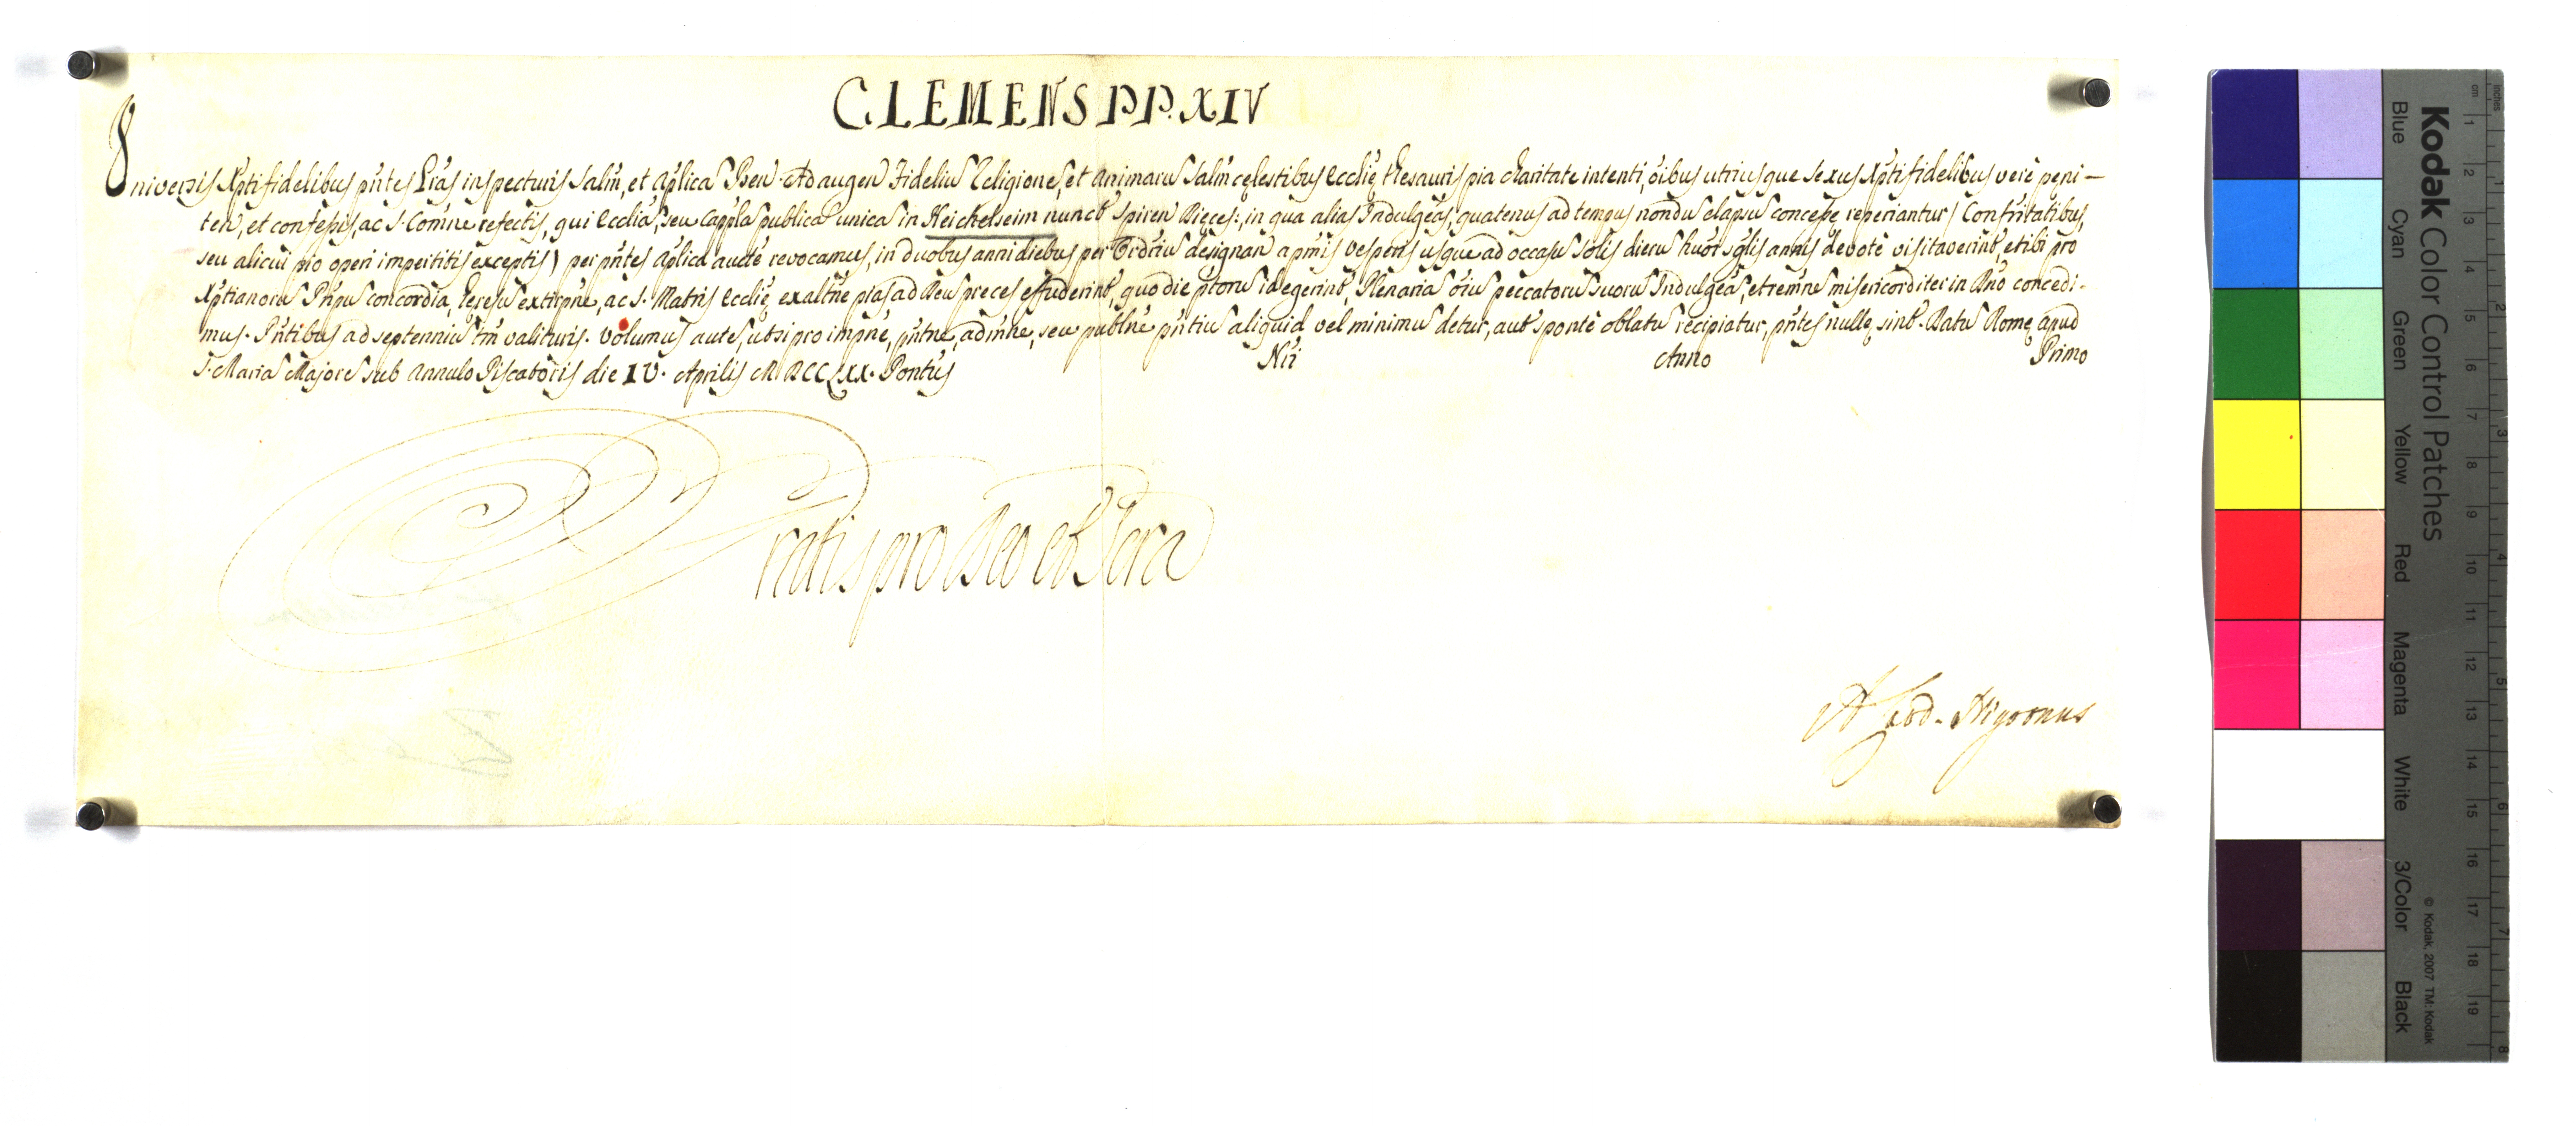 CLEMENS P.P. XIV
Universis Xpti fidelibus pñtes Lr̃as inspecturis Salm̃, et Aplicã Ben. Ad augen Fideliũ Religionẽ, et animarũ Salm̃ cęlestibus Ecclię thesauris pia charitate intenti, oĩbus utriusque sexus Xpti fidelibus verè pęni-
ten, et confessis, ac S. Comne refectis, qui Ecclia, seu Cappla publica unica in Heichelseim nunct Spiren Dięces:, in qua alias Indulgeas, quatenus ad tempus nondũ elapsũ concesse reperiantur (Confrñitatibus,
seu alicui pio operi impertitis exceptis) per pñtes aplica aucte revocamus, in duobus anni diebus per Ordriũ designan a pmis Vesperis usque ad occasũ Solis dierũ huoĩ sglis annis devotè visitaverint, et ibi pro
Xptianorũ Pñpũ concordia, hęresũ extirpne, ac S. Matris Ecclię exaltne pias ad Deũ preces effuderint, quo die ptorũ id egerint, Plenariã oĩũ peccatorũ suorũ Indulgeã, et remne misericorditer in Dno concedi-
mus. Pñtibus ad septenniũ tm valituris. Volumus autẽ, ut si pro impne, pñtne, admne, seu publne pñtiũ aliquid vel minimũ detur, aut spontè oblatũ recipiatur, pñtes nullę sint. Datũ Romę apud
S. Mariã Majorẽ sub Annulo Piscatoris die IV. Aprilis MDCCLXX. Pontus Nri Anno Primo
Gratis pro Deo et Scra
A. Card. Nigronus
Kodak Color Control Patches
© Kodak, 2007 TM: Kodak
Blue Cyan Green Yellow Red Magenta White 3/Color Black
cm 1 2 3 4 5 6 7 8 9 10 11 12 13 14 15 16 17 18 19
inches 1 2 3 4 5 6 7 8